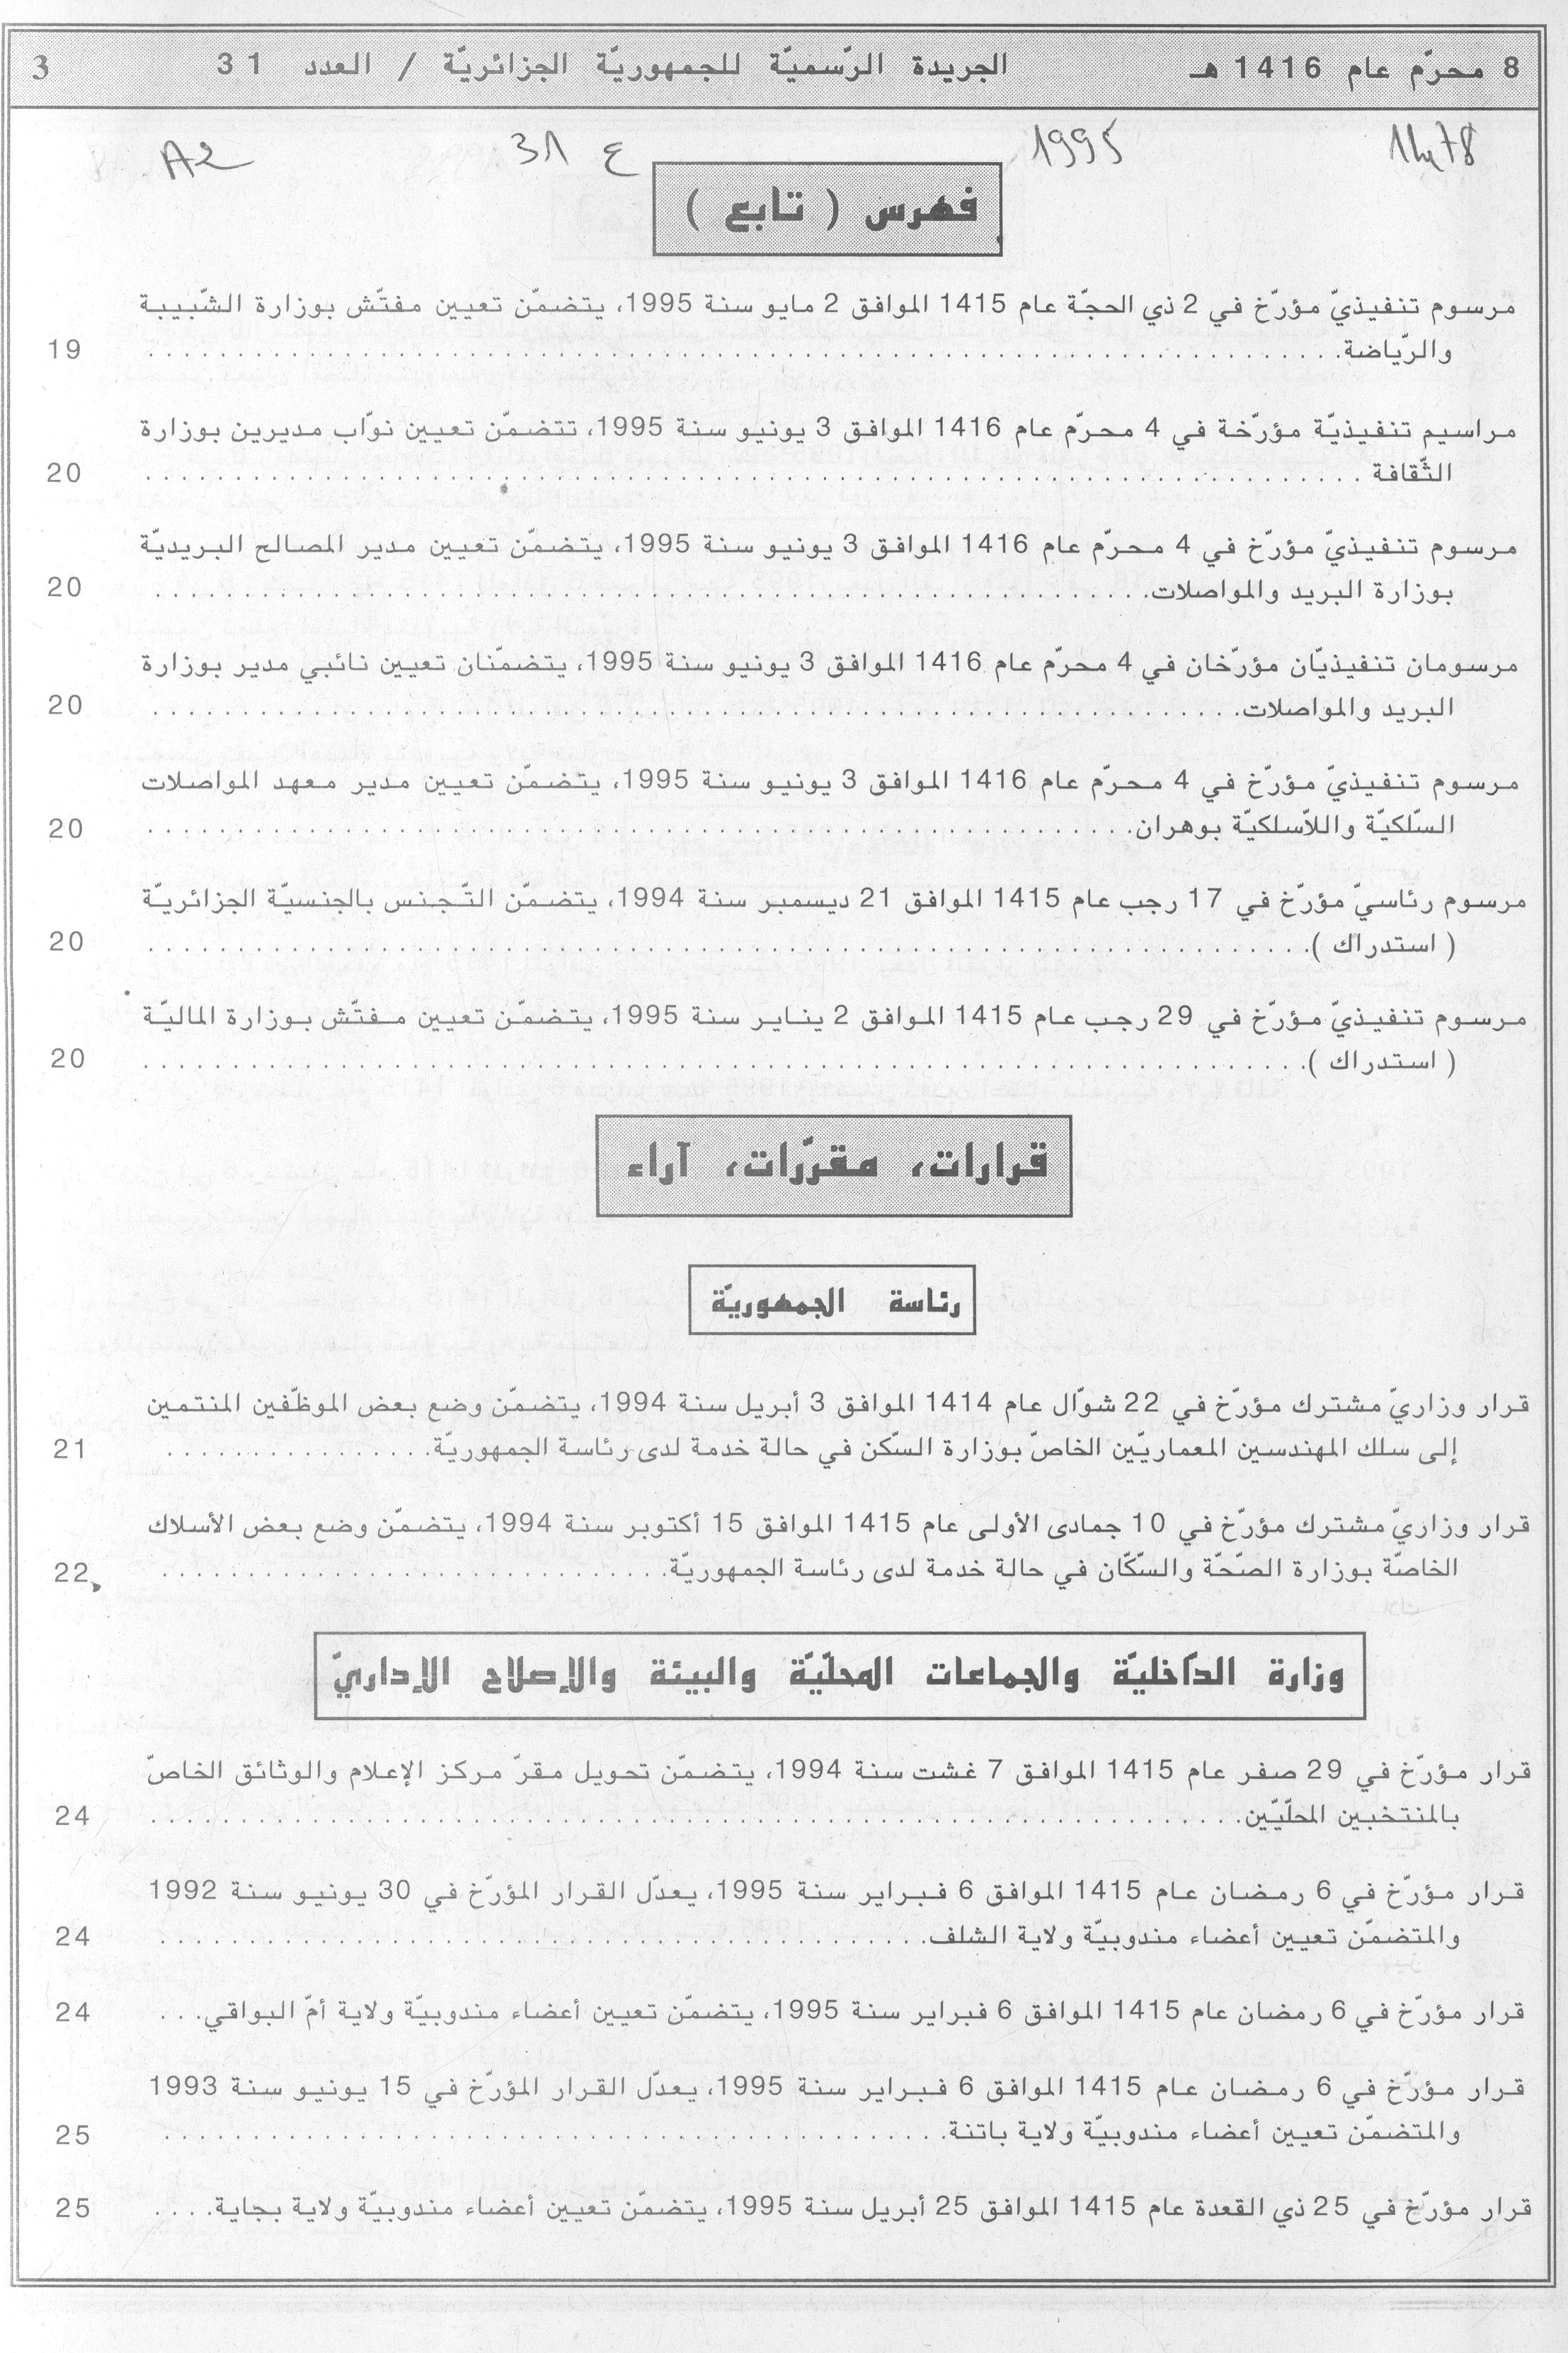 8 محرّم عام 1416 هـ الجريدة الرّسميّة للجمهوريّة الجزائريّة / العدد 31 3
1995 ع 31 A2
فهرس ( تابع )
مرسوم تنفيذيّ مؤرّخ في 2 ذي الحجّة عام 1415 الموافق 2 مايو سنة 1995، يتضمّن تعيين مفتّش بوزارة الشّبيبة
والرّياضة. 19
مراسيم تنفيذيّة مؤرّخة في 4 محرّم عام 1416 الموافق 3 يونيو سنة 1995، تتضمّن تعيين نوّاب مديرين بوزارة
الثّقافة 20
مرسوم تنفيذيّ مؤرّخ في 4 محرّم عام 1416 الموافق 3 يونيو سنة 1995، يتضمّن تعيين مدير المصالح البريديّة
بوزارة البريد والمواصلات. 20
مرسومان تنفيذيّان مؤرّخان في 4 محرّم عام 1416 الموافق 3 يونيو سنة 1995، يتضمّنان تعيين نائبي مدير بوزارة
البريد والمواصلات. 20
مرسوم تنفيذيّ مؤرّخ في 4 محرّم عام 1416 الموافق 3 يونيو سنة 1995، يتضمّن تعيين مدير معهد المواصلات
السّلكيّة واللاّسلكيّة بوهران. 20
مرسوم رئاسيّ مؤرّخ في 17 رجب عام 1415 الموافق 21 ديسمبر سنة 1994، يتضمّن التّجنس بالجنسيّة الجزائريّة
( استدراك ). 20
مرسوم تنفيذيّ مؤرّخ في 29 رجب عام 1415 الموافق 2 يناير سنة 1995، يتضمّن تعيين مفتّش بوزارة الماليّة
( استدراك ). 20
قرارات، مقرّرات، آراء
رئاسة الجمهوريّة
قرار وزاريّ مشترك مؤرّخ في 22 شوّال عام 1414 الموافق 3 أبريل سنة 1994، يتضمّن وضع بعض الموظّفين المنتمين
إلى سلك المهندسين المعماريّين الخاصّ بوزارة السّكن في حالة خدمة لدى رئاسة الجمهوريّة. 21
قرار وزاريّ مشترك مؤرّخ في 10 جمادى الأولى عام 1415 الموافق 15 أكتوبر سنة 1994، يتضمّن وضع بعض الأسلاك
الخاصّة بوزارة الصّحّة والسّكّان في حالة خدمة لدى رئاسة الجمهوريّة. 22
وزارة الدّاخليّة والجماعات المحلّيّة والبيئة والإصلاح الإداريّ
قرار مؤرّخ في 29 صفر عام 1415 الموافق 7 غشت سنة 1994، يتضمّن تحويل مقرّ مركز الإعلام والوثائق الخاصّ
بالمنتخبين المحلّيّين. 24
قرار مؤرّخ في 6 رمضان عام 1415 الموافق 6 فبراير سنة 1995، يعدّل القرار المؤرّخ في 30 يونيو سنة 1992
والمتضمّن تعيين أعضاء مندوبيّة ولاية الشلف. 24
قرار مؤرّخ في 6 رمضان عام 1415 الموافق 6 فبراير سنة 1995، يتضمّن تعيين أعضاء مندوبيّة ولاية أمّ البواقي. 24
قرار مؤرّخ في 6 رمضان عام 1415 الموافق 6 فبراير سنة 1995، يعدّل القرار المؤرّخ في 15 يونيو سنة 1993
والمتضمّن تعيين أعضاء مندوبيّة ولاية باتنة. 25
قرار مؤرّخ في 25 ذي القعدة عام 1415 الموافق 25 أبريل سنة 1995، يتضمّن تعيين أعضاء مندوبيّة ولاية بجاية. 25